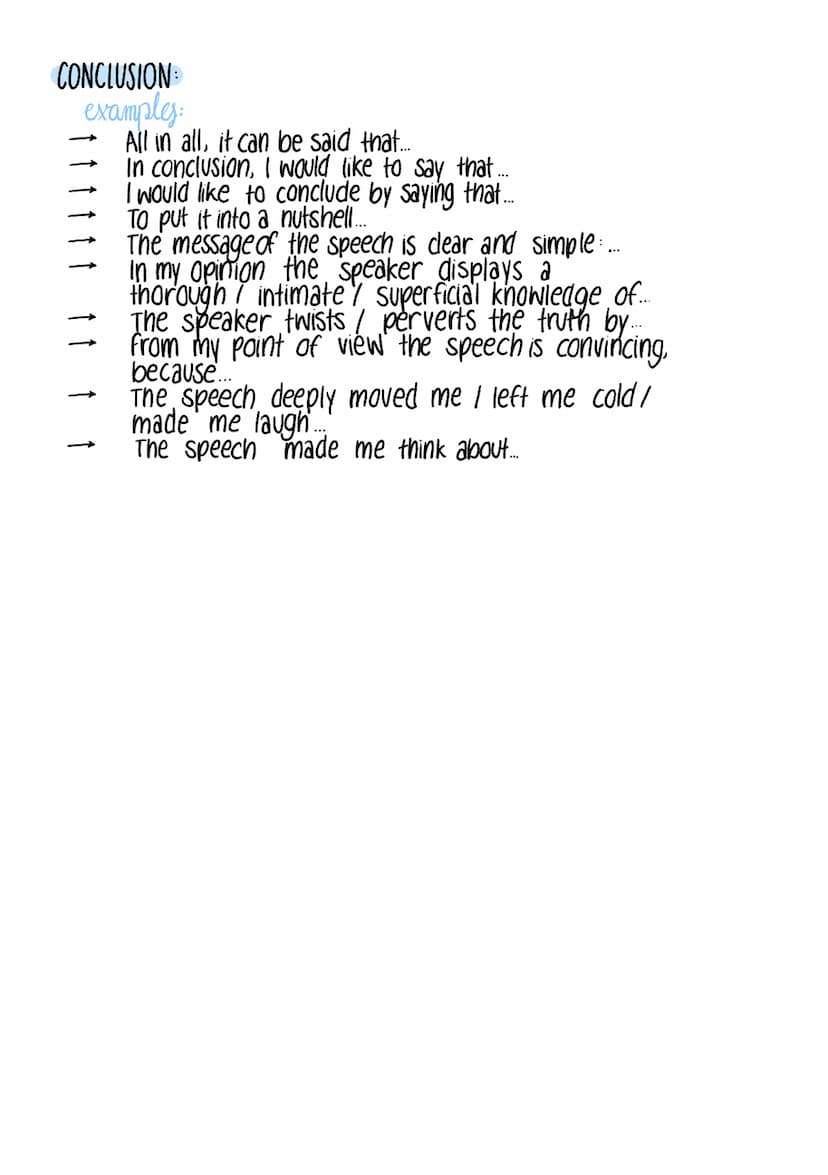 CONCLUSION:
examples:
→ All in all, it can be said that...
→ In conclusion, I would like to say that...
→ I would like to conclude by saying that...
→ To put it into a nutshell...
→ The message of the speech is clear and simple: ...
→ In my opinion the speaker displays a
thorough / intimate / superficial knowledge of...
→ The speaker twists / perverts the truth by...
→ From my point of view the speech is convincing,
because...
→ The speech deeply moved me / left me cold /
made me laugh...
→ The speech made me think about...